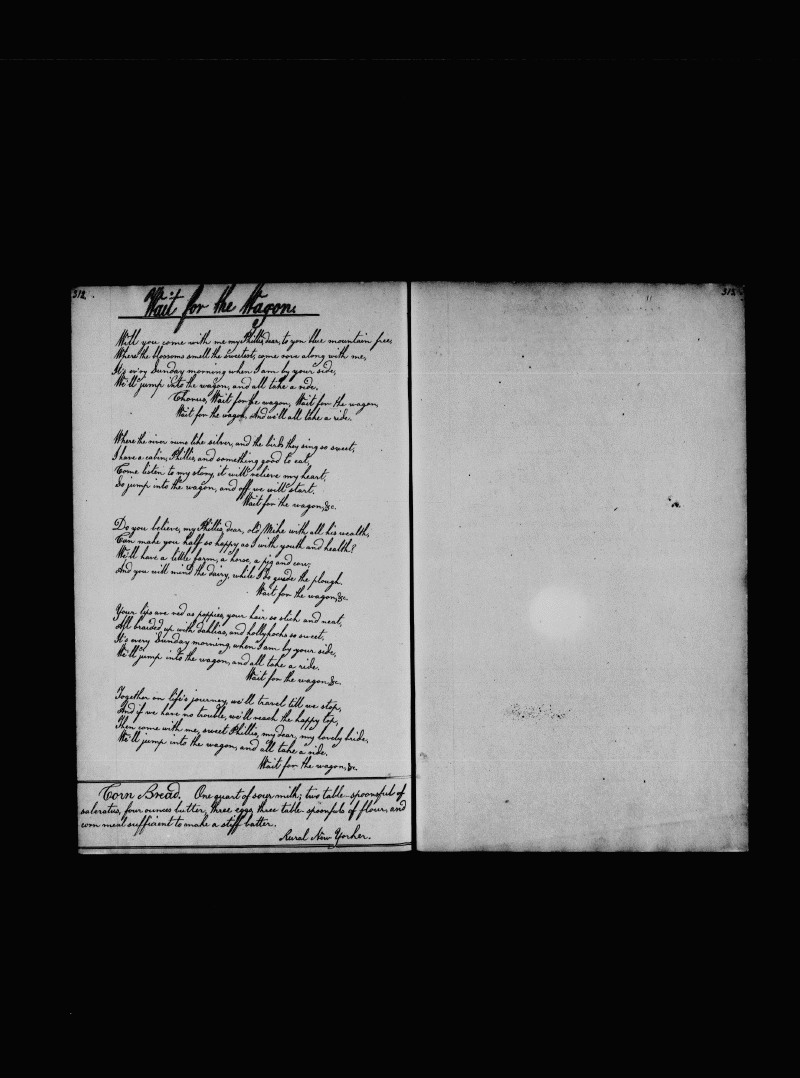 312.
Wait for the Wagon.
Will you come with me my Phillis, dear, to yon blue mountain free,
Where the blossoms smell the sweetest, come rove along with me,
It's ev'ry Sunday morning when I am by your side,
We'll jump into the wagon, and all take a ride.
Chorus, Wait for the wagon, Wait for the wagon,
Wait for the wagon, And we'll all take a ride.
Where the river runs like silver, and the birds they sing so sweet,
I have a cabin, Phillis, and something good to eat,
Come listen to my story, it will relieve my heart,
So jump into the wagon, and off we will start.
Wait for the wagon, &c.
Do you believe, my Phillis, dear, old Mike with all his wealth,
Can make you half so happy as I with youth and health?
We'll have a little farm, a horse, a pig and cow;
And you will mind the dairy, while I do guide the plough.
Wait for the wagon, &c.
Your lips are red as poppies, your hair so slick and neat,
All braided up with dahlias, and hollyhocks so sweet,
It's every Sunday morning, when I am by your side,
We'll jump into the wagon, and all take a ride.
Wait for the wagon, &c.
Together on life's journey, we'll travel till we stop,
And if we have no trouble, we'll reach the happy top,
Then come with me, sweet Phillis, my dear, my lovely bride,
We'll jump into the wagon, and all take a ride.
Wait for the wagon, &c.
Corn Bread. One quart of sour milk; two table-spoonsful of
saleratus, four ounces butter, three eggs, three table-spoonfuls of flour, and
corn meal sufficient to make a stiff batter.
Rural New Yorker.
313.